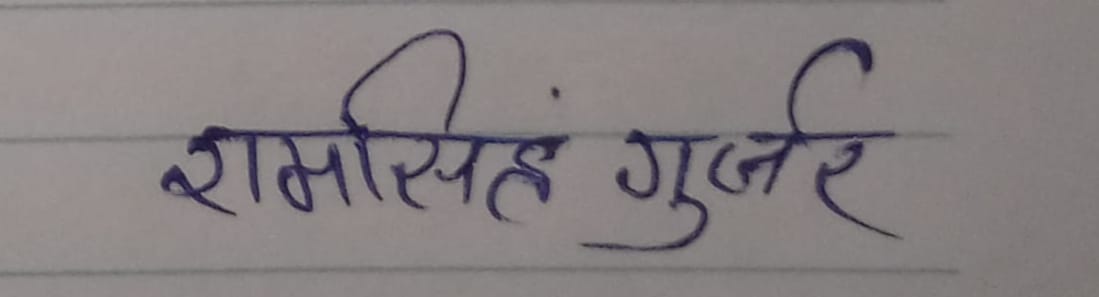 रामसिहं गुर्जर